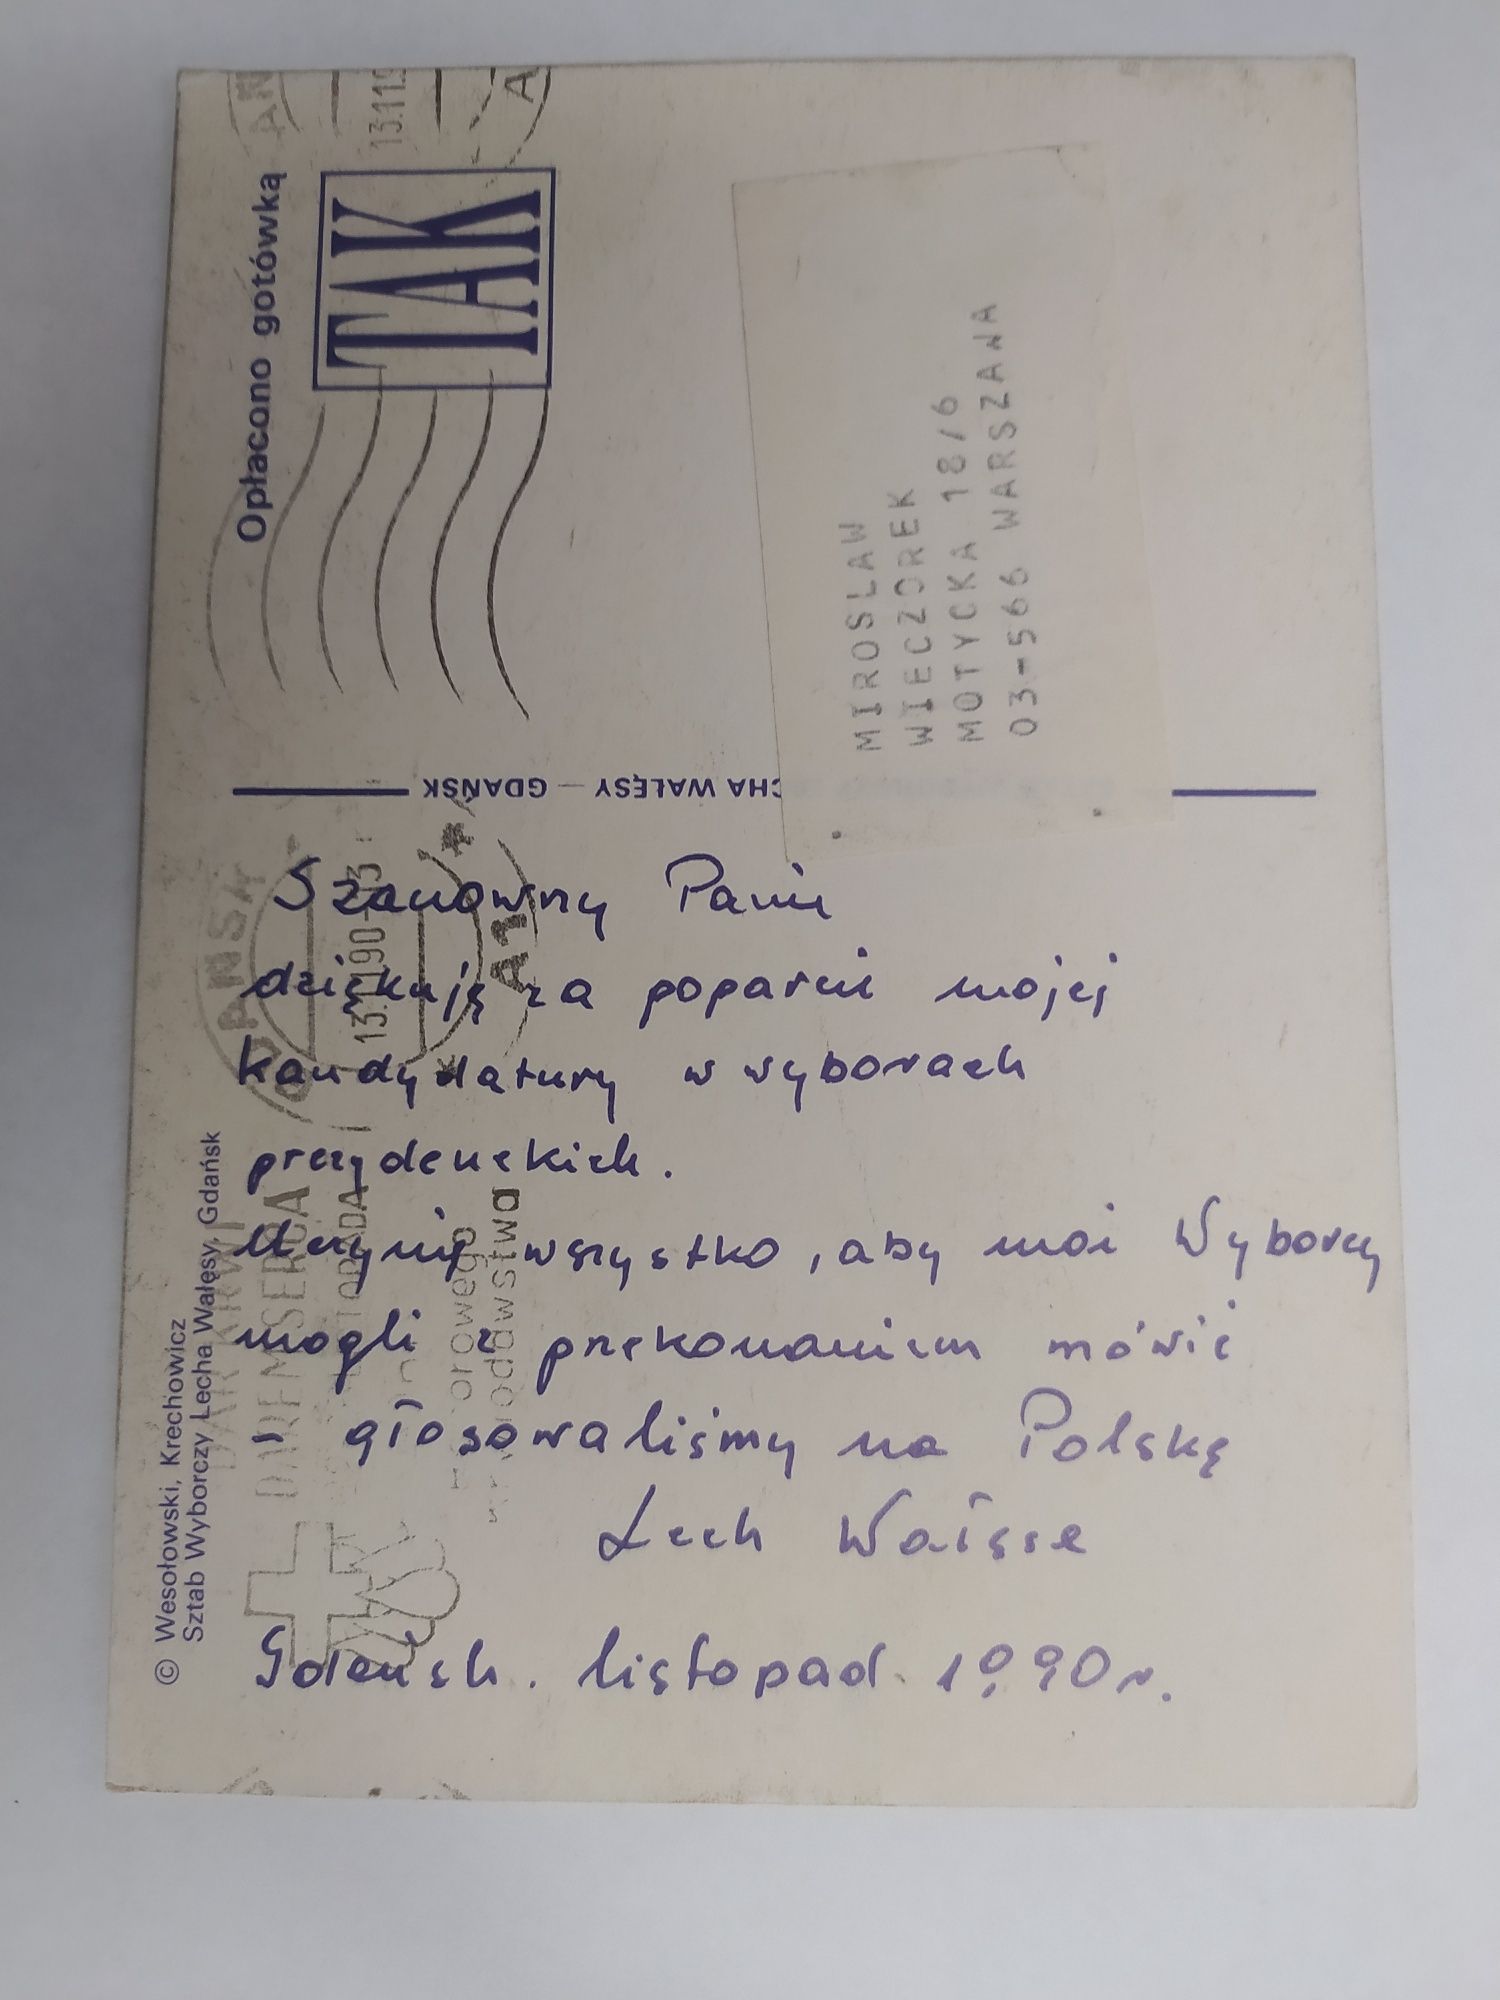 Opłacono gotówką
TAK
13.11.90
GDAŃSK
A1
DAR KRWI
DAREM SERCA
MIROSLAW
WIECZOREK
MOTYCKA 18/6
03-566 WARSZAWA
CHA WAŁĘSY — GDAŃSK
Szanowny Panie
dziękuję za poparcie mojej
kandydatury w wyborach
prezydenckich.
Uczynię wszystko, aby moi Wyborcy
mogli z przekonaniem mówić
głosowaliśmy na Polskę
Lech Wałęsa
Gdańsk. listopad 1990 r.
© Wesołowski, Krechowicz
Sztab Wyborczy Lecha Wałęsy, Gdańsk